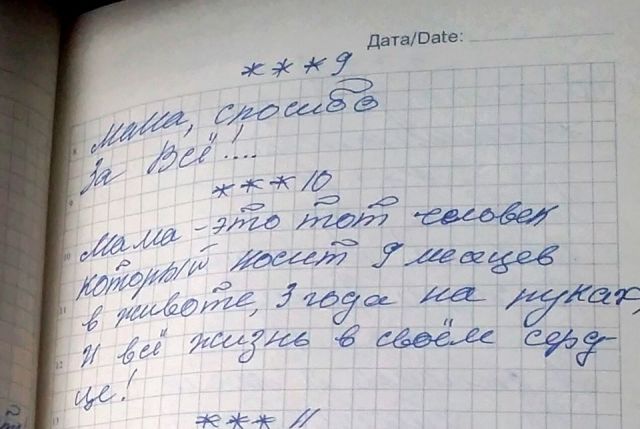 Дата/Date:
***9
Мама, спосибо
За Всё!....
***10
Мама - это тот человек
который носит 9 месяцев
в животе, 3 года на руках,
И всё жизнь в своём серд-
це!
***11